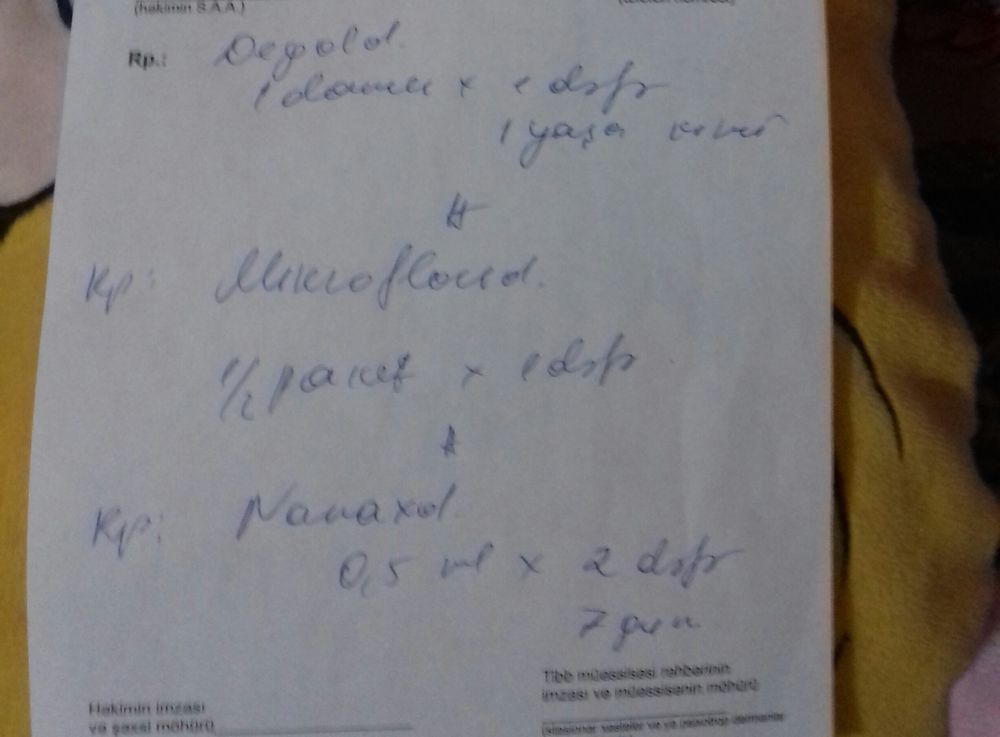 (həkimin S.A.A.)
Rp.: Degold.
1 damcı x 1 dəfə
1 yaşa kimi
#
Rp: Mikroflorid.
1/2 paket x 1 dəfə
#
Rp: Nanaxol
0,5 ml x 2 dəfə
7 gün
Həkimin imzası
və şəxsi möhürü
Tibb müəssisəsi rəhbərinin
imzası və müəssisənin möhürü